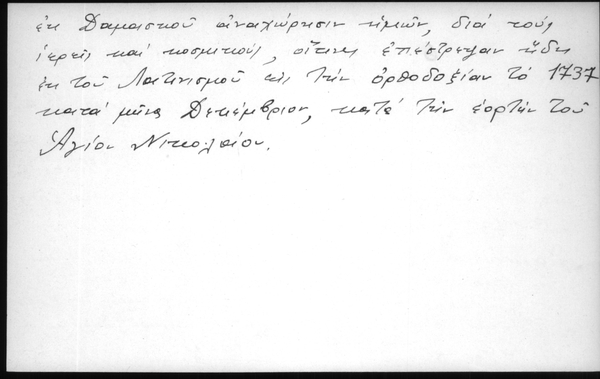 ἐκ Δαμασκοῦ ἀναχώρησιν ἡμῶν, διά τούς
ἱερεῖς καί κοσμικούς, οἵτινες ἐπέστρεψαν ἤδη
ἐκ τοῦ Λατινισμοῦ εἰς τήν ὀρθοδοξίαν τό 1737
κατά μῆνα Δεκέμβριον, κατά τήν ἑορτήν τοῦ
Ἁγίου Νικολάου.